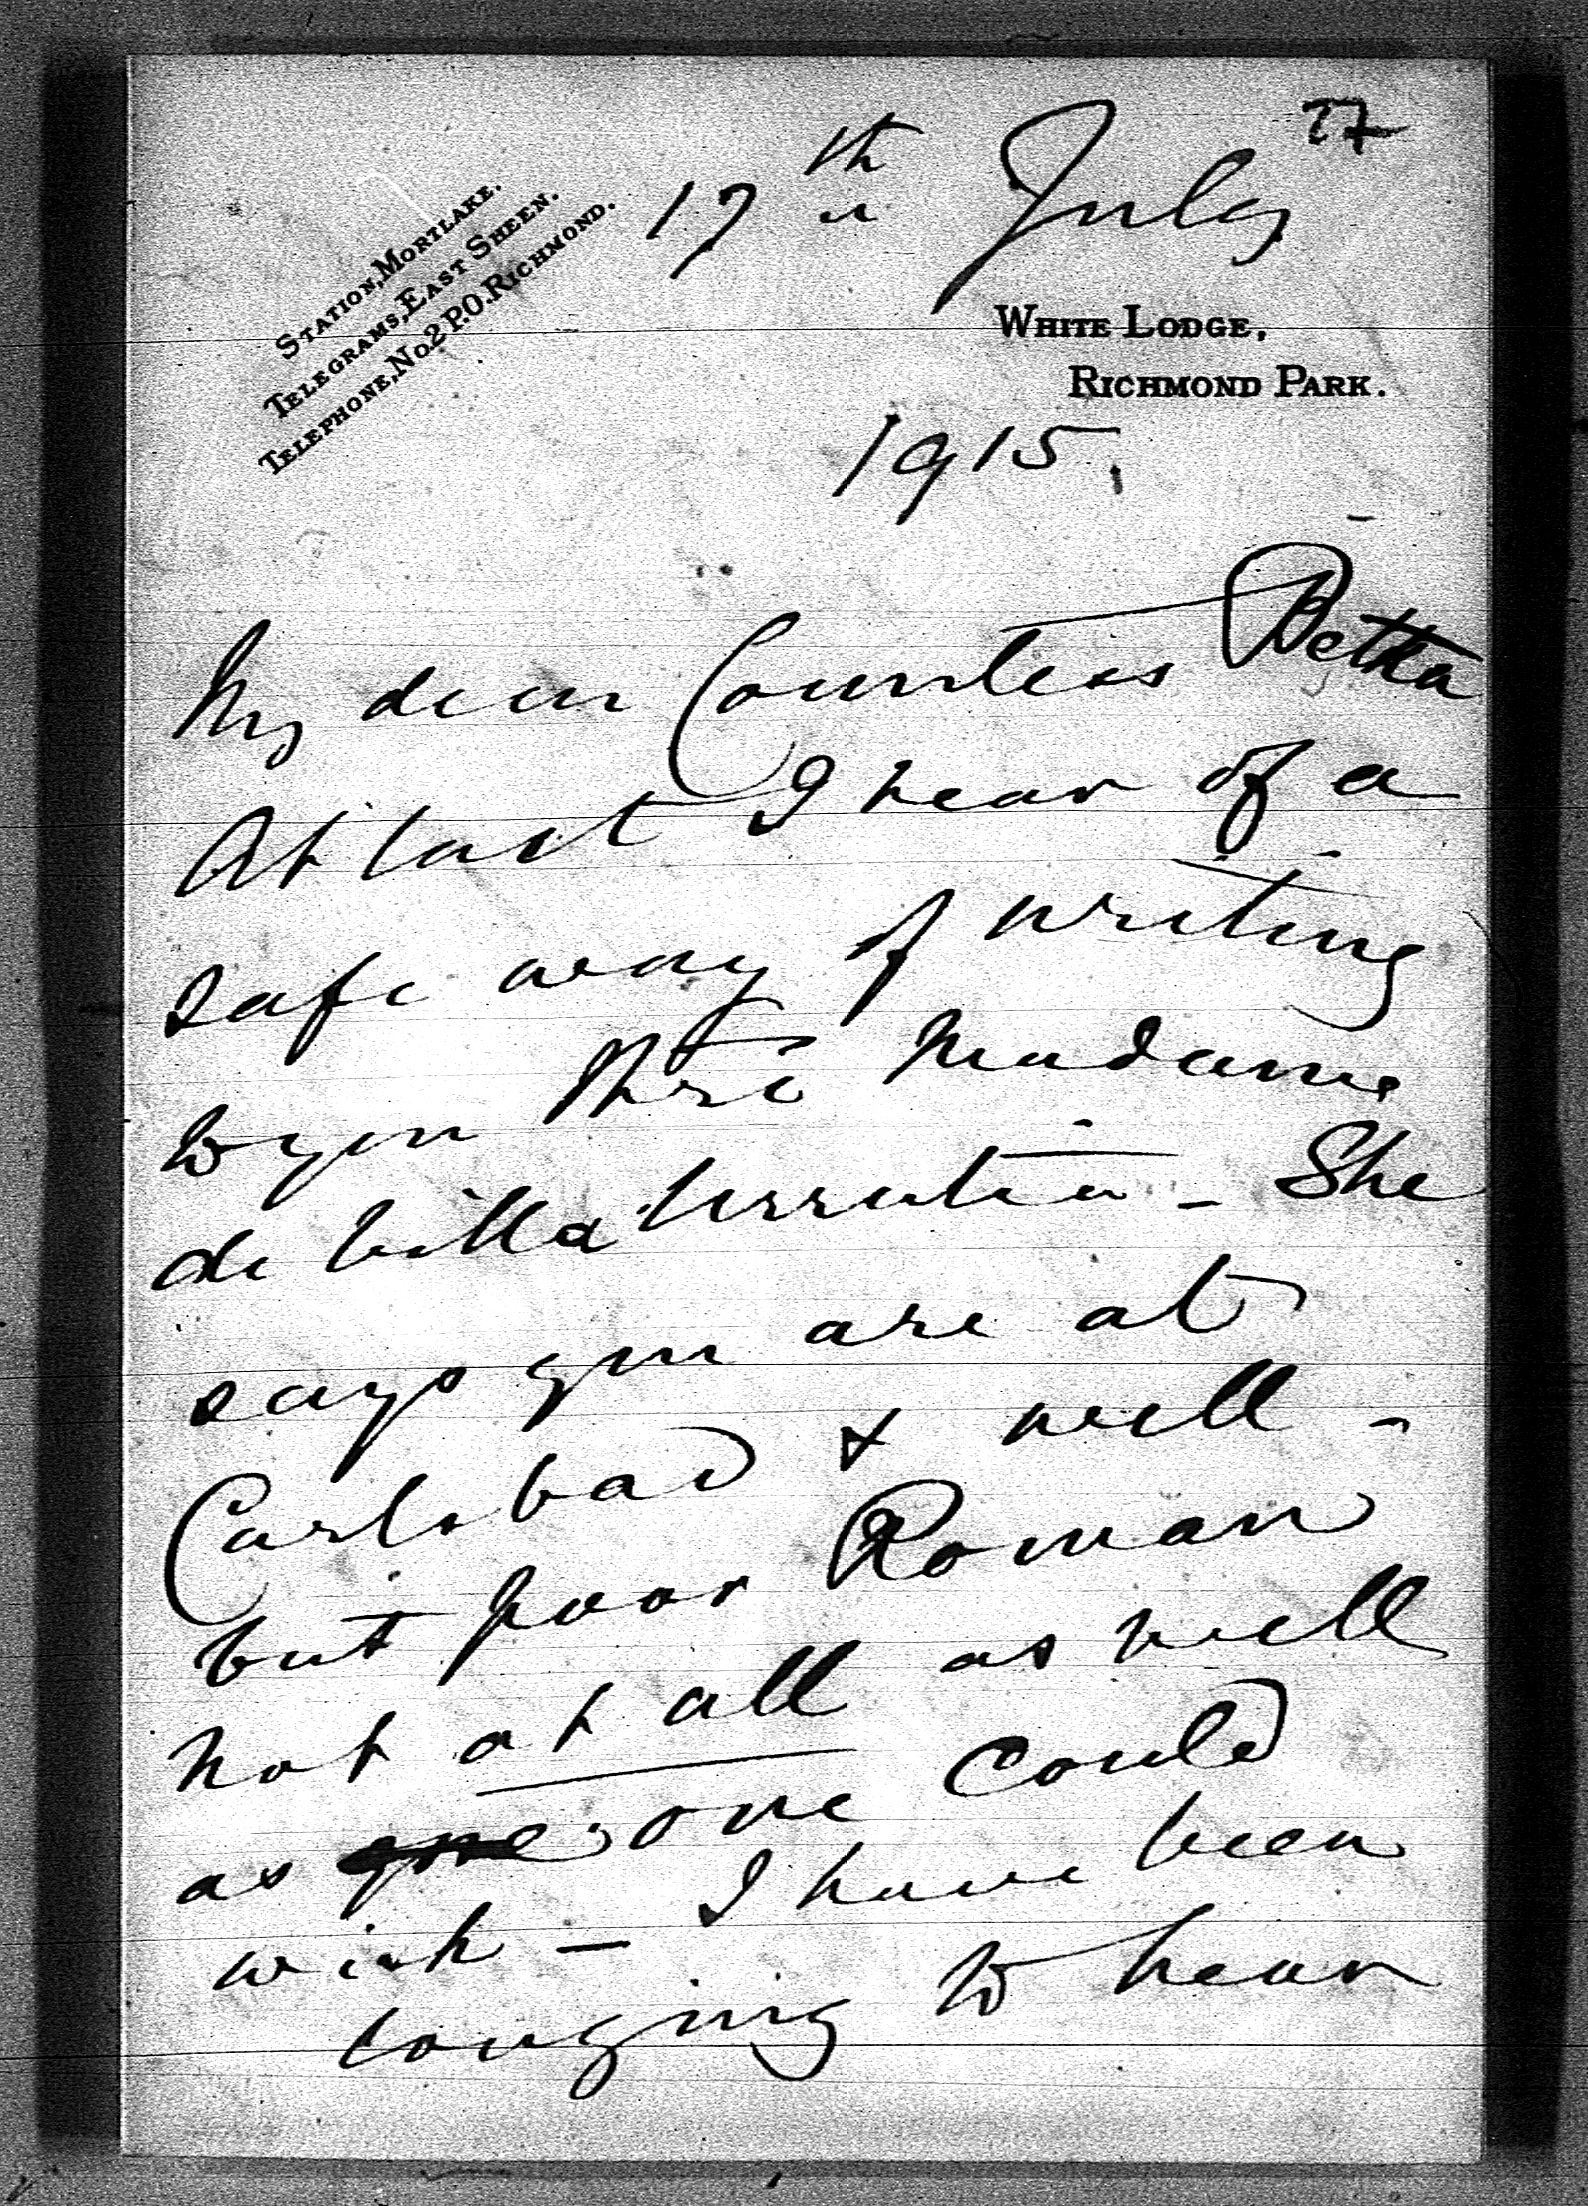 77
17th July
STATION, MORTLAKE.
TELEGRAMS, EAST SHEEN.
TELEPHONE, No 2 P.O. RICHMOND.
WHITE LODGE,
RICHMOND PARK.
1915.
My dear Countess Betka
At last I hear of a
safe way of writing
to you thro' Madame
de Villa Urrutia - She
says you are at
Carlsbad & well -
but poor Roman
not at all as well
as one could
wish - I have been
longing to hear